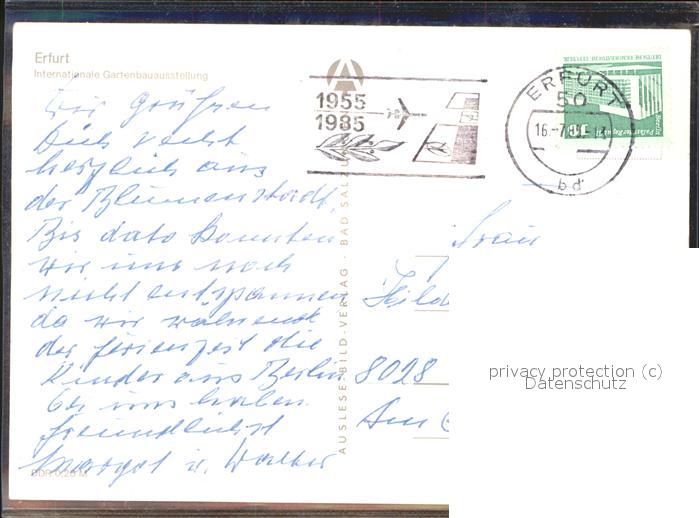 Erfurt
Internationale Gartenbauausstellung
Wir Grüssen
Dich recht
herzlich aus
der Blumenstadt,
Bis dato konnten
wir uns noch
nicht entspannen
da wir während
der ferienzeit die
Kinder aus Berlin
bei uns haben
freundlichst
Margot u. Walter
DDR 0,20 M
AUSLESE-BILD-VERLAG · BAD SALZ
1955
1985
ERFURT
50
16.-7.
bd
Frau
Hild
8028
Am
privacy protection (c)
Datenschutz